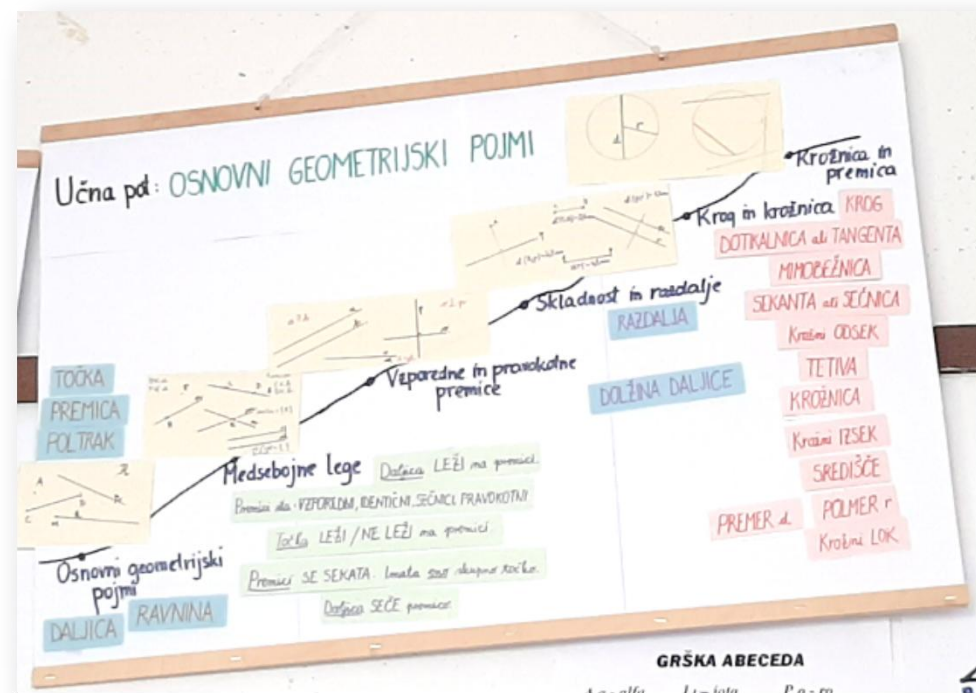 Učna pot: OSNOVNI GEOMETRIJSKI POJMI
Krožnica in
premica
Krog in krožnica
KROG
DOTIKALNICA ali TANGENTA
MIMOBEŽNICA
SEKANTA ali SEČNICA
Krožni ODSEK
TETIVA
KROŽNICA
Krožni IZSEK
SREDIŠČE
PREMER d
POLMER r
Krožni LOK
Skladnost in razdalje
RAZDALJA
DOLŽINA DALJICE
Vzporedne in pravokotne
premice
TOČKA
PREMICA
POLTRAK
Medsebojne lege
Daljica LEŽI na premici.
Premici sta VZPOREDNI, IDENTIČNI, SEČNICI, PRAVOKOTNI
Točka LEŽI / NE LEŽI na premici.
Premici SE SEKATA. Imata eno skupno točko.
Daljica SEČE premico.
Osnovni geometrijski
pojmi
DALJICA
RAVNINA
GRŠKA ABECEDA